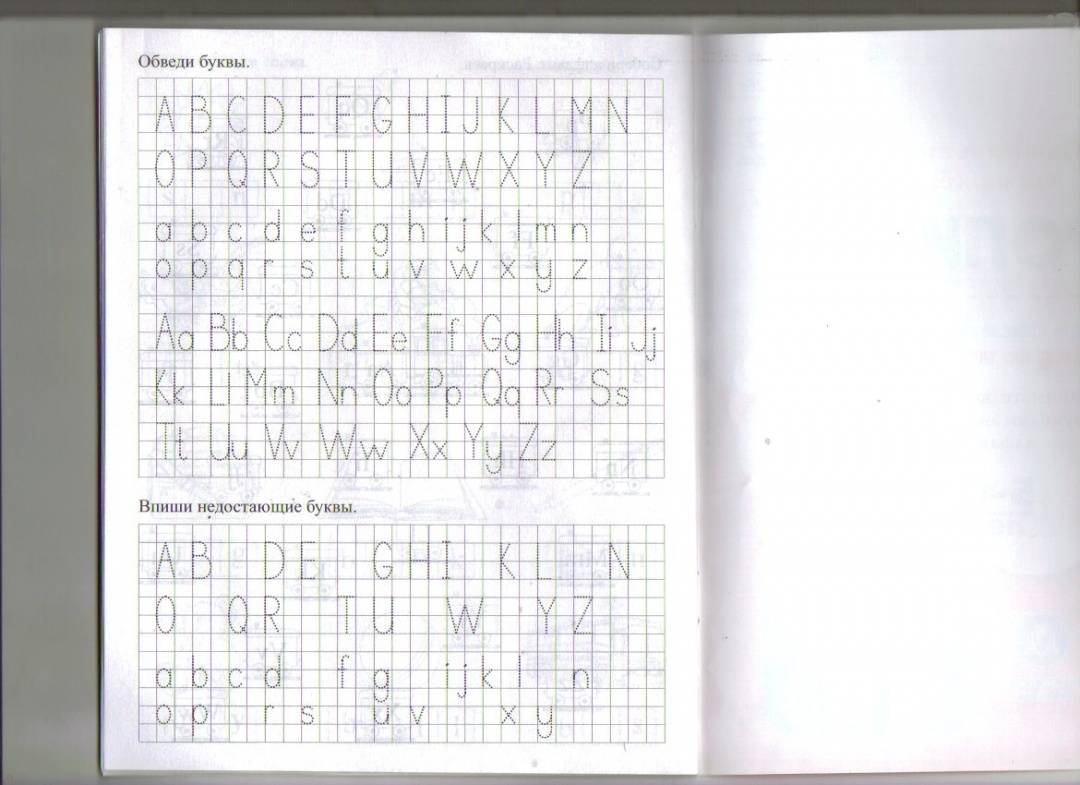 Обведи буквы.
A B C D E F G H I J K L M N
O P Q R S T U V W X Y Z
a b c d e f g h i j k l m n
o p q r s t u v w x y z
Aa Bb Cc Dd Ee Ff Gg Hh Ii Jj
Kk Ll Mm Nn Oo Pp Qq Rr Ss
Tt Uu Vv Ww Xx Yy Zz
Впиши недостающие буквы.
A B D E G H I K L N
O Q R T U W Y Z
a b c d f g i j k l n
o p r s u v x y